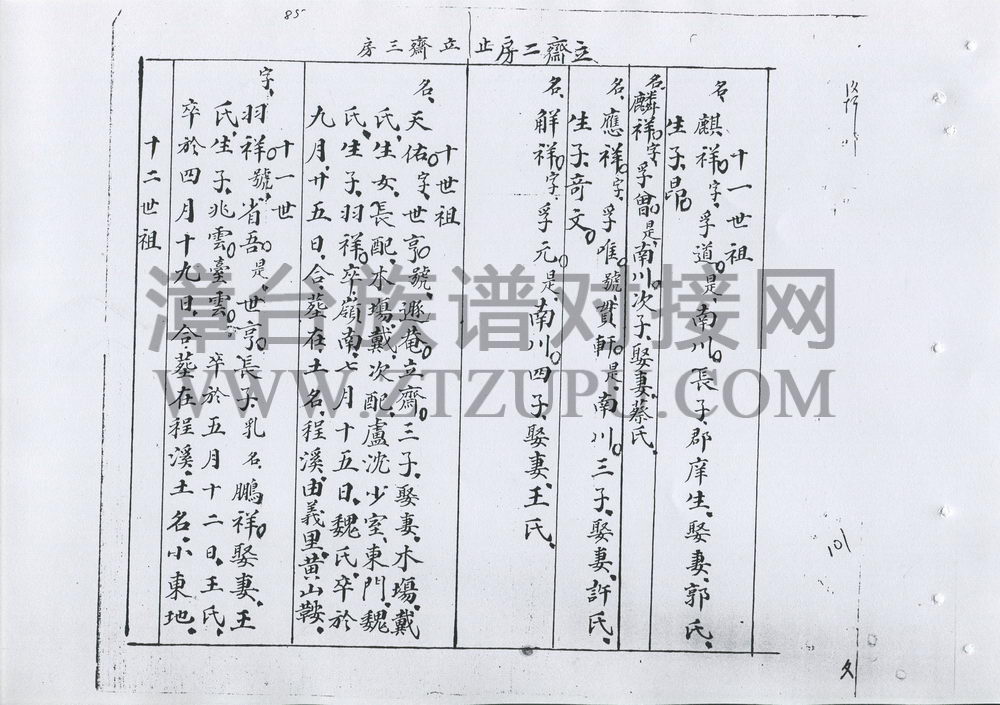 85
立齋二房止 立齋三房
十一世祖
名、麒祥。字、孚道。是、南川。長子、郡庠生、娶妻、郭氏、
生子、昂。
名、麟祥。字、孚曾。是、南川。次子、娶妻、蔡氏、
名、應祥。字、孚唯。號、貫軒。是、南川。三子、娶妻、許氏、
生子、奇文。
名、解祥。字、孚元。是、南川。四子、娶妻、王氏、
十世祖
名、天佑。字、世亨。號、遯菴。立齋。三子、娶妻、木塲、戴
氏、生女、長配、木塲戴、次配、盧沈少室、東門、魏
氏、生子、羽祥。卒嶺南、七月十五日、魏氏、卒於
九月、廿五日、合、葬在、土名、程溪、由義里、黄山鞍、
十一世
字、羽祥。號、省吾。是、世亨。長子、乳名、鵬祥。娶妻、王
氏、生子、兆雲。臺雲。卒於五月十二日、王氏、
卒於四月十九日、合葬在程溪、土名、小東地、
十二世祖
101
漳台族谱对接网
WWW.ZTZUPU.COM